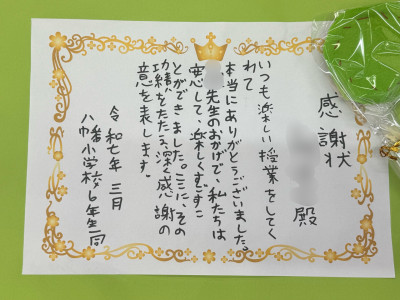 感謝状
殿
いつも楽しい授業をしてく
わて
本当にありがとうございました。
先生のおかげで、私たちは
安心して、楽しくすごすこ
とができました。ここに、その
功績をたたえ、深く感謝の
意を表します。
令和七年 三月
八幡小学校6年生一同